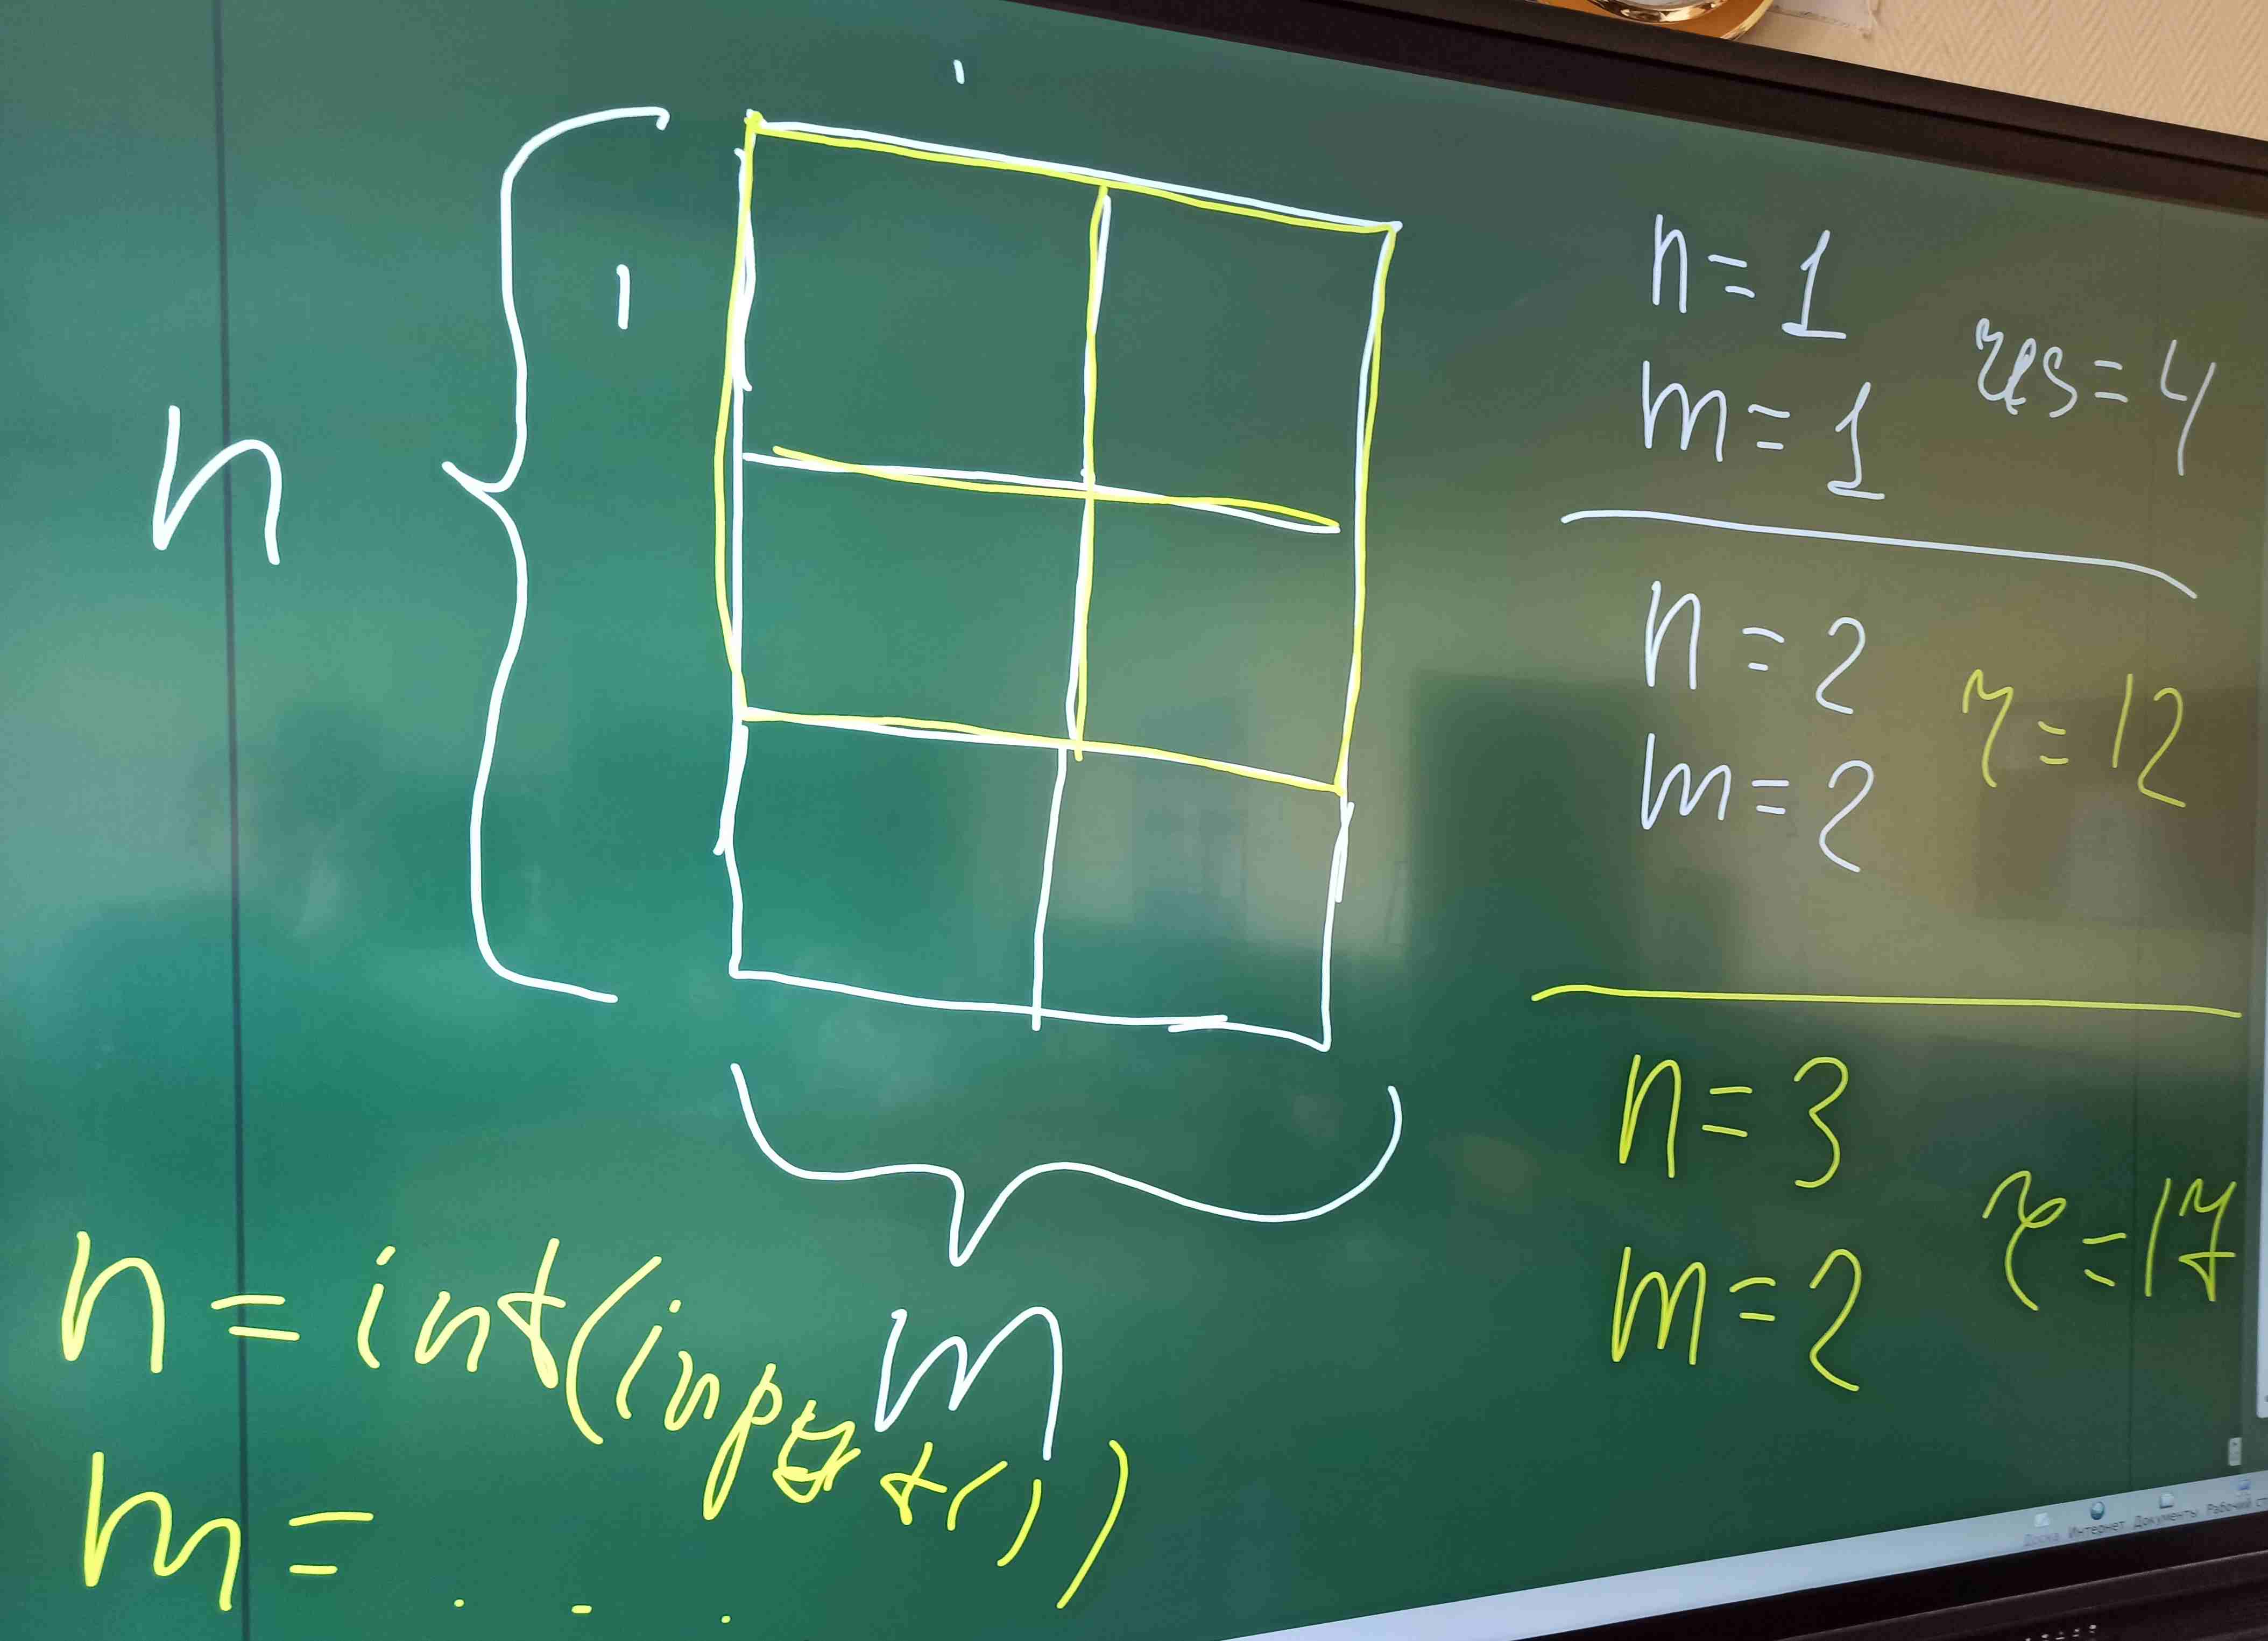 n
1
m
n = 1
m = 1
res = 4
n = 2
m = 2
r = 12
n = 3
m = 2
r = 17
n = int(input())
m = . . .
Доска Интернет Документы Рабочий ст